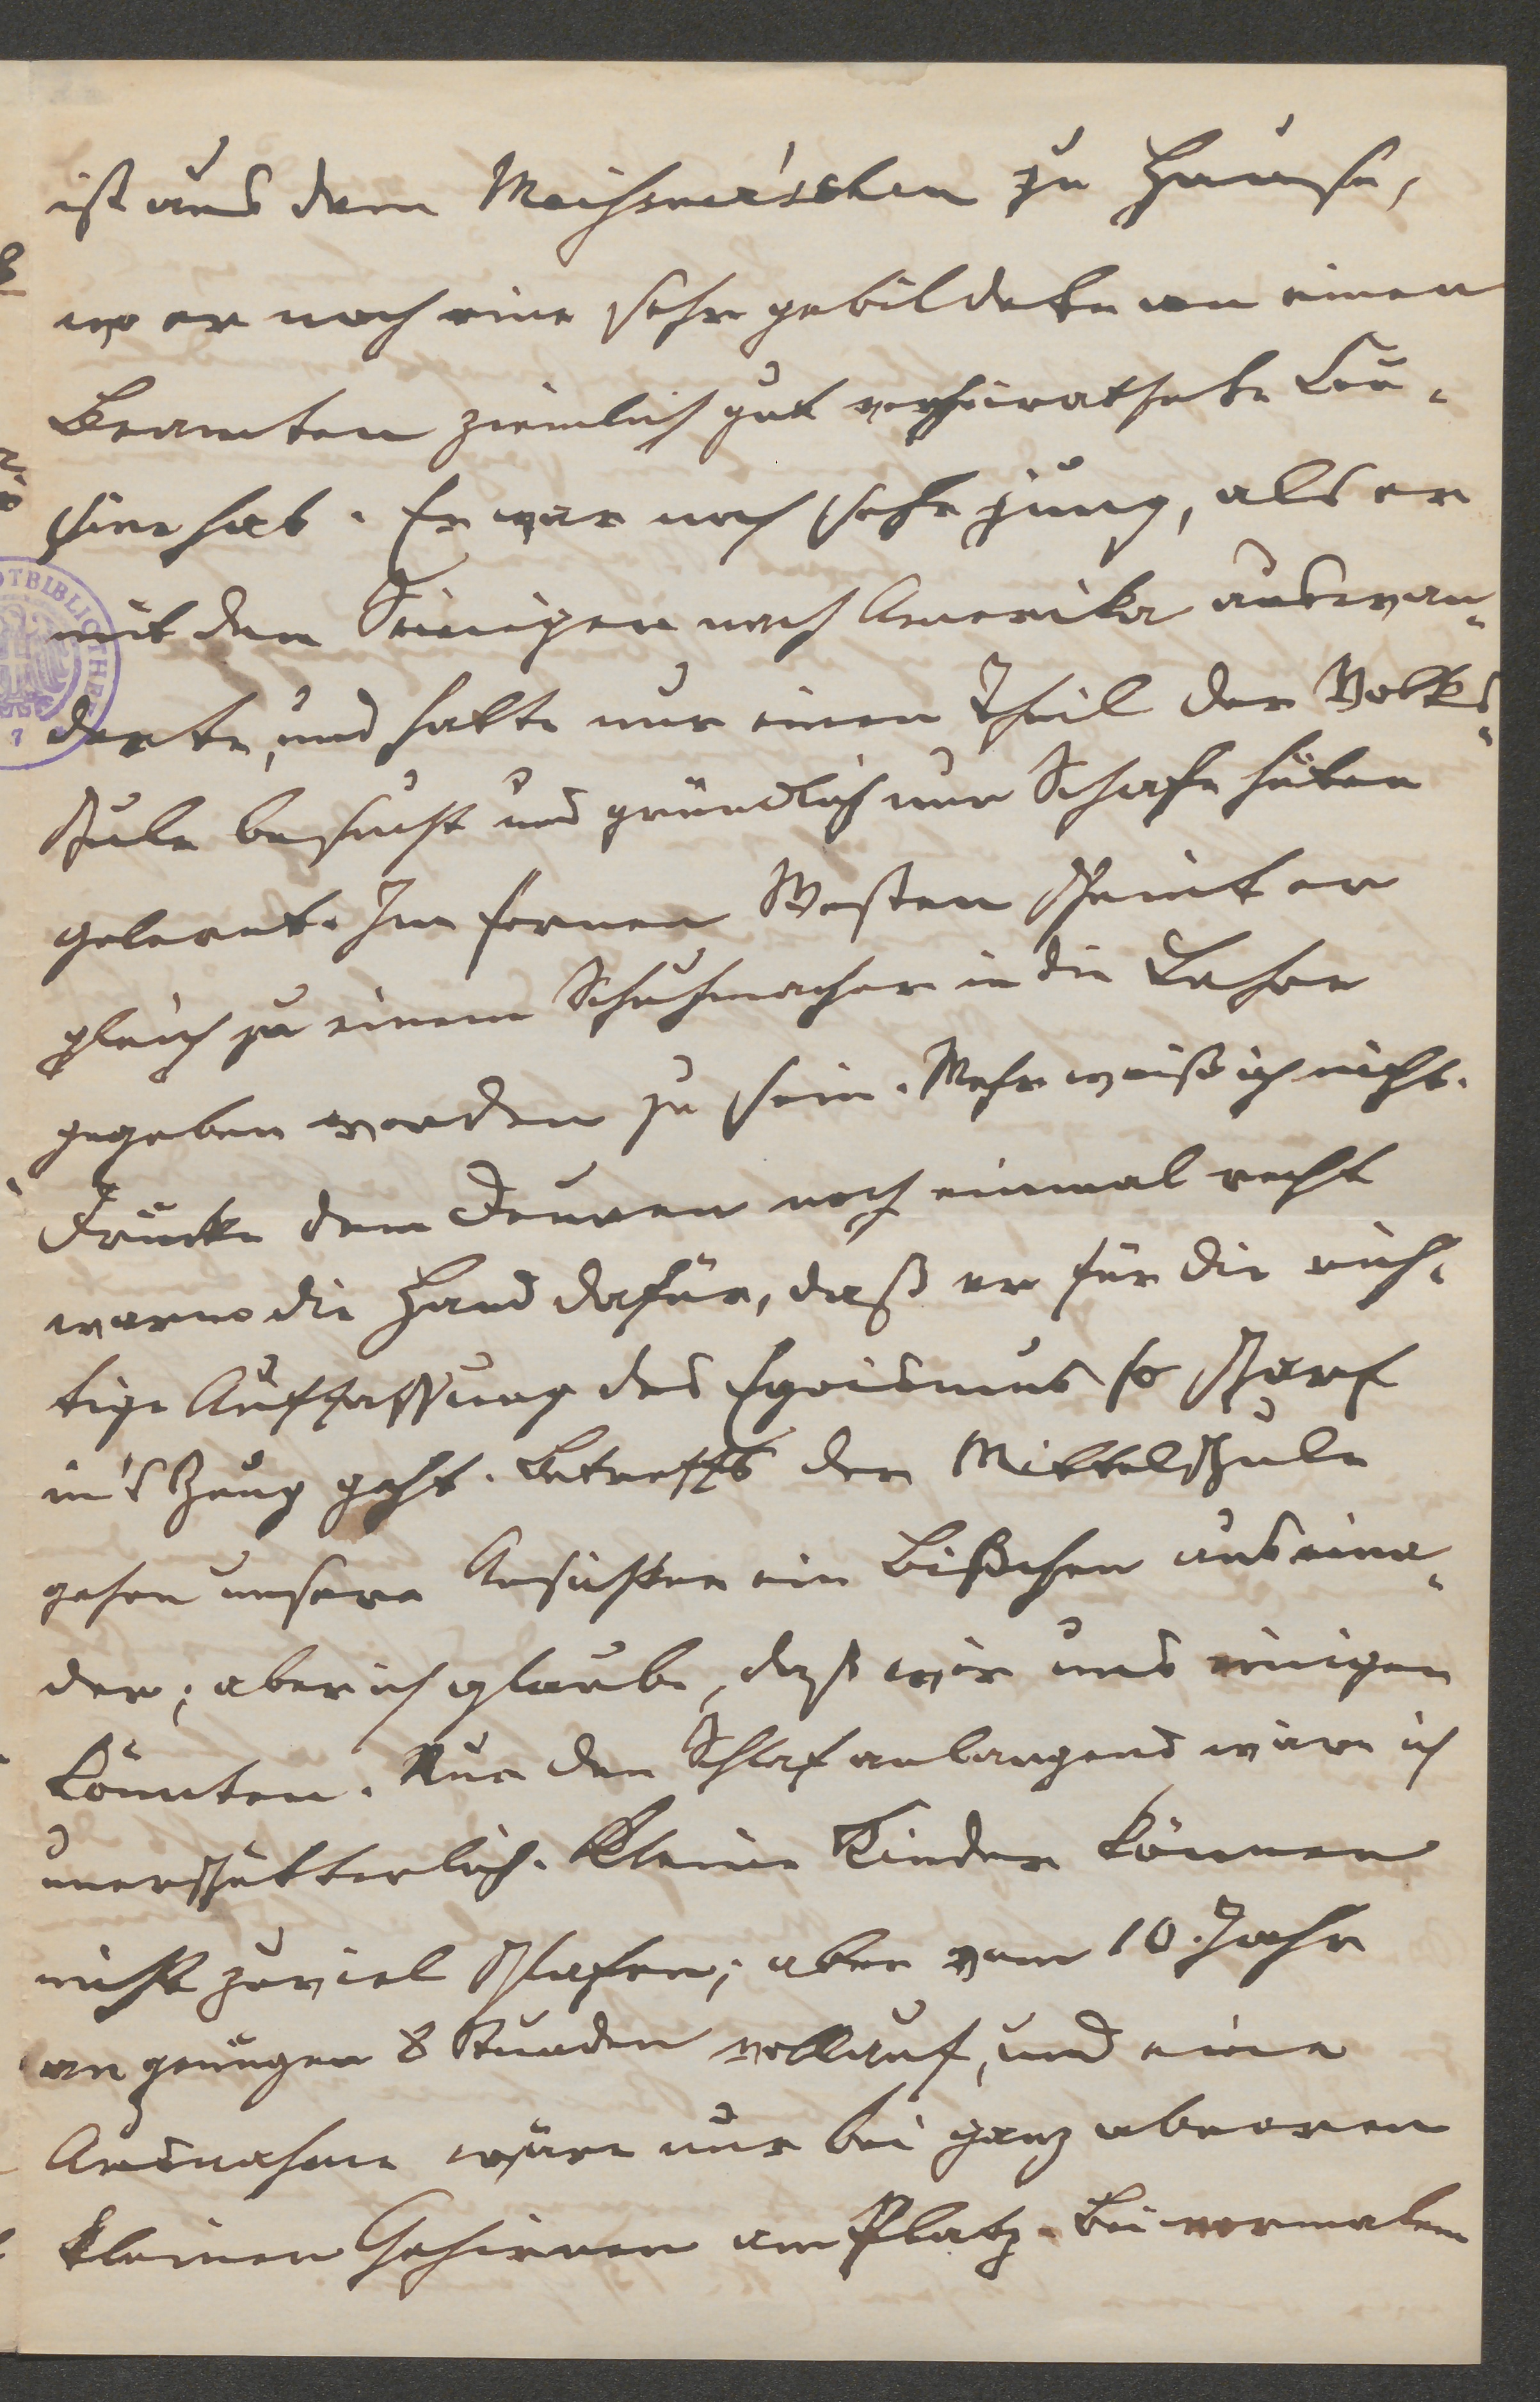 ist aus dem Meißner'schen zu Hause,
wo er noch eine sehr gebildete an einen
Beamten ziemlich gut verheirathete Cou-
sine hat. Er war noch sehr jung, als er
mit den Seinigen nach Amerika auswan-
derte, und hatte nur einen Theil der Volks-
schule besucht und gründlich nur Schafe hüten
gelernt. Im fernen Westen scheint er
gleich zu einem Schuhmacher in die Lehre
gegeben worden zu sein. Mehr weiß ich nicht.
Drücke dem noch einmal recht
warm die Hand dafür, daß er für die rich-
tige Auffassung des Egoismus so scharf
in's Zeug geht. Betreffs der Mittelschule
gehen unsere Ansichten ein Bißchen auseina-
der; aber ich glaube, daß wir uns einigen
könnten. Nur den Schlaf anlangend wäre ich
unerschütterlich. Kleine Kinder können
nicht zuviel schlafen; aber vom 10. Jahr
an genügen 8 Stunden vollauf, und eine
Ausnahme wäre nur bei ganz abnormen
kleinen Gehirnen am Platz. Bei normalem